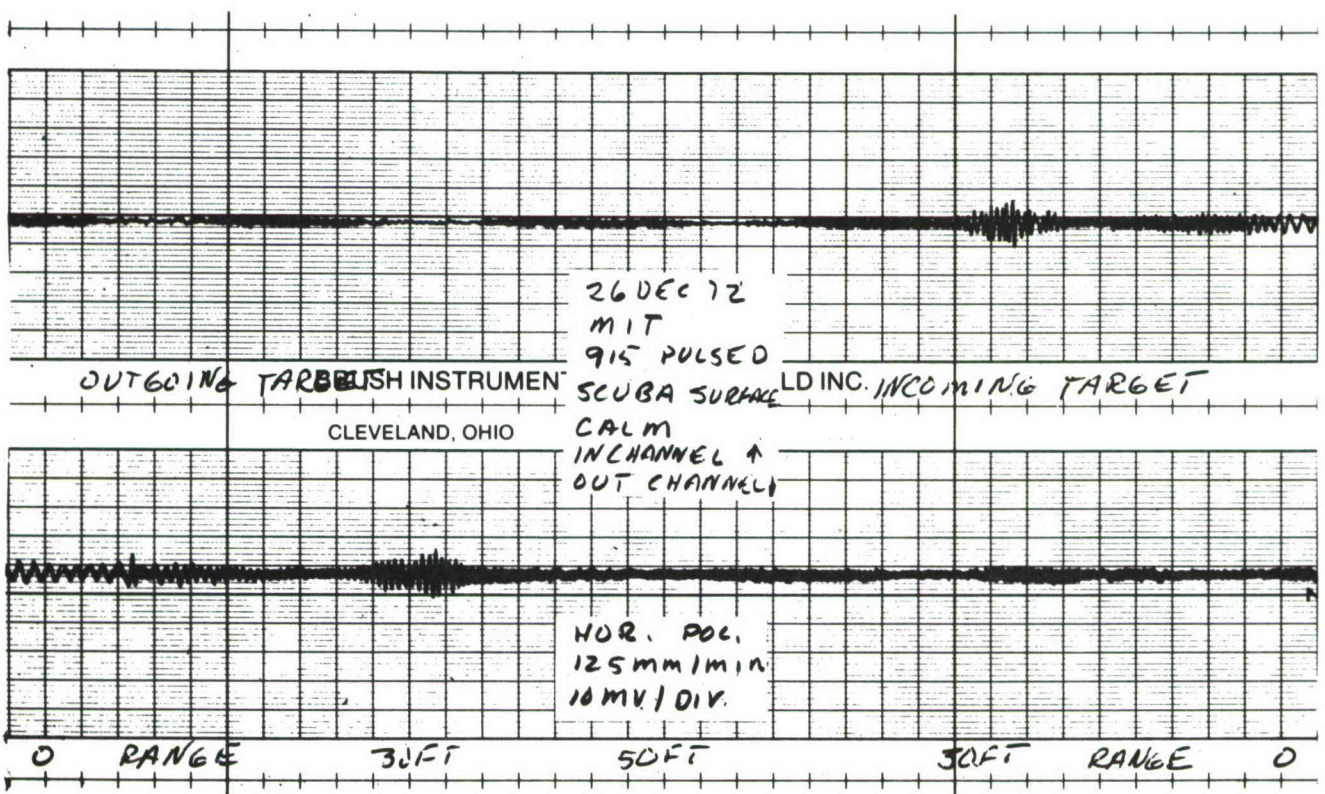 26 DEC 72
MIT
915 PULSED
SCUBA SURFACE
CALM
INCHANNEL ↑
OUT CHANNEL
OUTGOING TARGET
BRUSH INSTRUMEN
LD INC.
INCOMING TARGET
CLEVELAND, OHIO
HOR. POL.
125mm/min
10 MV/DIV.
0 RANGE 30FT 50FT 30FT RANGE 0